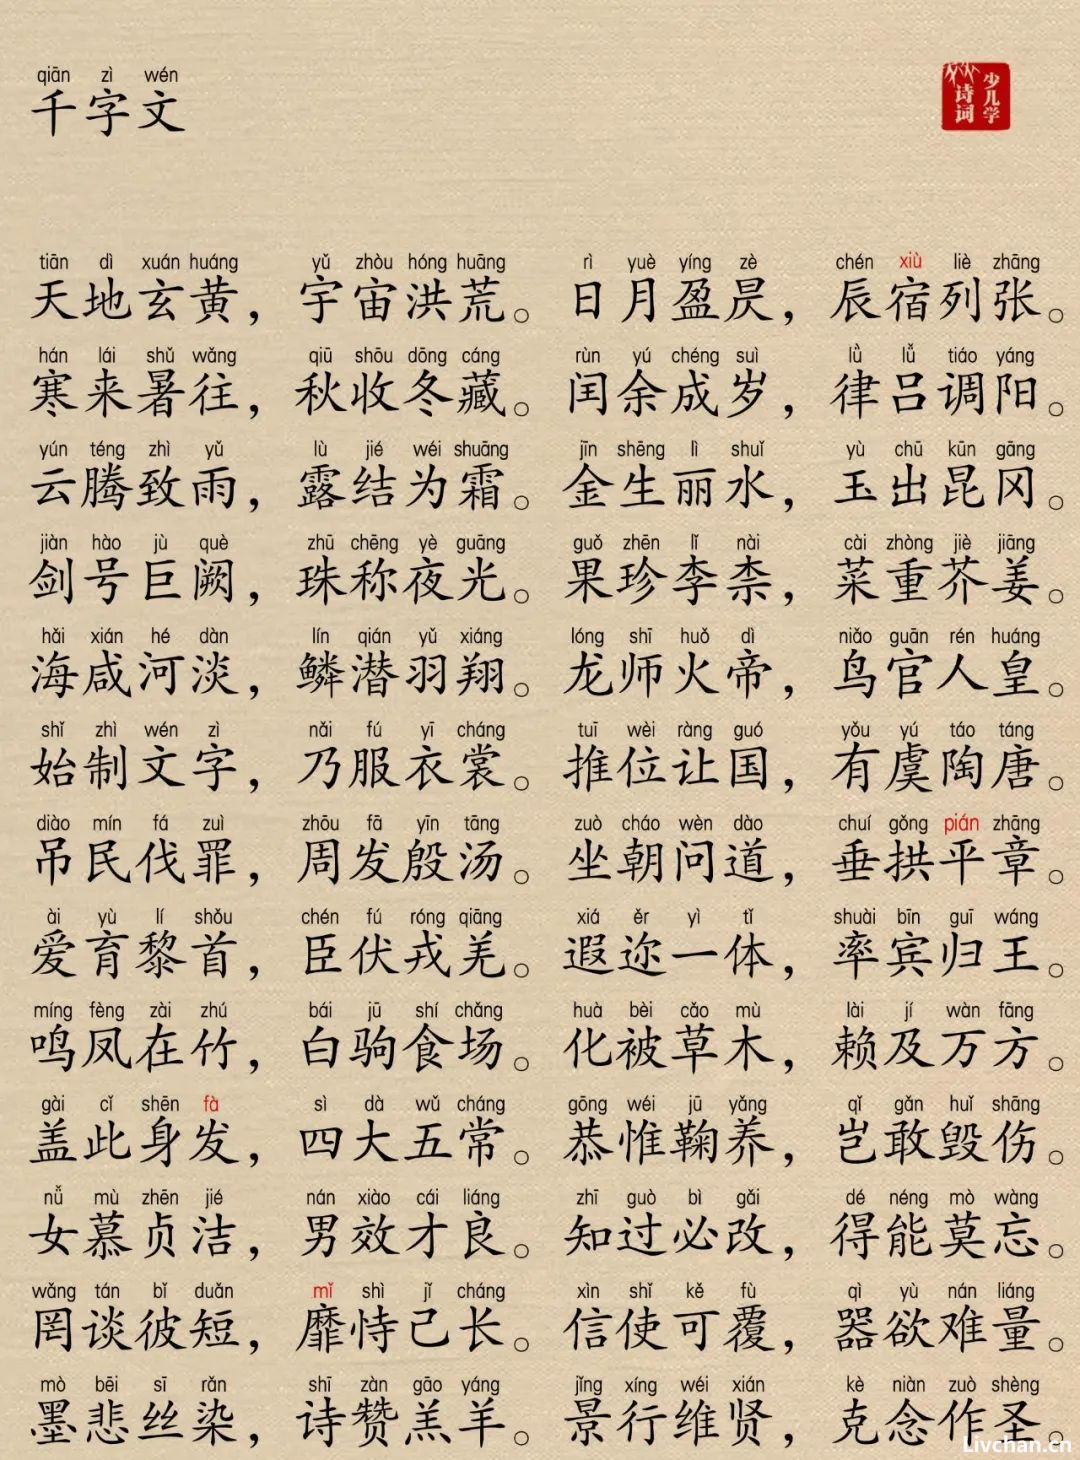 qiān zì wén
千字文
少儿学
诗词
tiān dì xuán huáng yǔ zhòu hóng huāng rì yuè yíng zè chén xiù liè zhāng
天地玄黄，宇宙洪荒。日月盈昃，辰宿列张。
hán lái shǔ wǎng qiū shōu dōng cáng rùn yú chéng suì lǜ lǚ tiáo yáng
寒来暑往，秋收冬藏。闰余成岁，律吕调阳。
yún téng zhì yǔ lù jié wéi shuāng jīn shēng lì shuǐ yù chū kūn gāng
云腾致雨，露结为霜。金生丽水，玉出昆冈。
jiàn hào jù què zhū chēng yè guāng guǒ zhēn lǐ nài cài zhòng jiè jiāng
剑号巨阙，珠称夜光。果珍李柰，菜重芥姜。
hǎi xián hé dàn lín qián yǔ xiáng lóng shī huǒ dì niǎo guān rén huáng
海咸河淡，鳞潜羽翔。龙师火帝，鸟官人皇。
shǐ zhì wén zì nǎi fú yī cháng tuī wèi ràng guó yǒu yú táo táng
始制文字，乃服衣裳。推位让国，有虞陶唐。
diào mín fá zuì zhōu fā yīn tāng zuò cháo wèn dào chuí gǒng pián zhāng
吊民伐罪，周发殷汤。坐朝问道，垂拱平章。
ài yù lí shǒu chén fú róng qiāng xiá ěr yì tǐ shuài bīn guī wáng
爱育黎首，臣伏戎羌。遐迩一体，率宾归王。
míng fèng zài zhú bái jū shí chǎng huà bèi cǎo mù lài jí wàn fāng
鸣凤在竹，白驹食场。化被草木，赖及万方。
gài cǐ shēn fà sì dà wǔ cháng gōng wéi jū yǎng qǐ gǎn huǐ shāng
盖此身发，四大五常。恭惟鞠养，岂敢毁伤。
nǚ mù zhēn jié nán xiào cái liáng zhī guò bì gǎi dé néng mò wàng
女慕贞洁，男效才良。知过必改，得能莫忘。
wǎng tán bǐ duǎn mǐ shì jǐ cháng xìn shǐ kě fù qì yù nán liáng
罔谈彼短，靡恃己长。信使可覆，器欲难量。
mò bēi sī rǎn shī zàn gāo yáng jǐng xíng wéi xián kè niàn zuò shèng
墨悲丝染，诗赞羔羊。景行维贤，克念作圣。
Livchan.cn